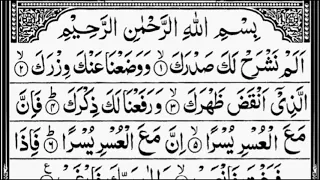 بِسْمِ اللّٰهِ الرَّحْمٰنِ الرَّحِيْمِ
اَلَمْ نَشْرَحْ لَكَ صَدْرَكَ ۝۱ وَوَضَعْنَا عَنْكَ وِزْرَكَ ۝۲
الَّذِيْٓ اَنْقَضَ ظَهْرَكَ ۝۳ وَرَفَعْنَا لَكَ ذِكْرَكَ ۝۴ فَاِنَّ
مَعَ الْعُسْرِ يُسْرًا ۝۵ اِنَّ مَعَ الْعُسْرِ يُسْرًا ۝۶ فَاِذَا